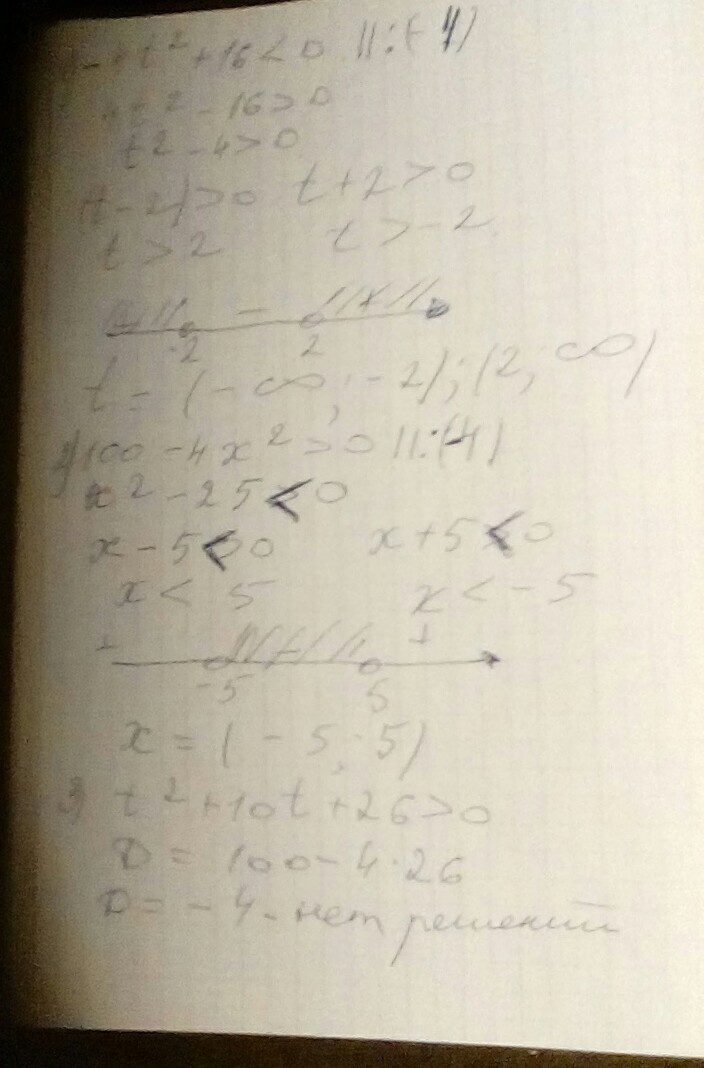 -4t² + 16 < 0 ||:(-1)
4t² - 16 > 0
t² - 4 > 0
(t-2) > 0 t + 2 > 0
t > 2 t > -2
-
-2 2
t = (-∞; -2); (2; ∞)
2) 100 - 4x² > 0 ||:(-4)
x² - 25 < 0
x - 5 < 0 x + 5 < 0
x < 5 x < -5
+ - +
-5 5
x = (-5; 5)
3) t² + 10t + 26 > 0
D = 100 - 4·26
D = -4 - нет решений